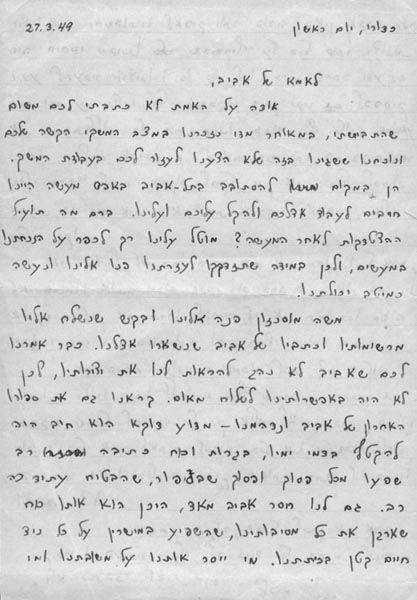 27.3.49
כפורי, יום ראשון
לאמא של אביב,
אוצה על האמת לא כתבתי לכם משום
שהתביישתי, במאוחר מדי נזכרנו במצב המשקי הקשה שלכם
ונוכחנו ששגינו בזה שלא הצענו לעזור לכם בעבודת המשק.
הן במקום להסתובב בתל-אביב באפס מעשה היינו
חייבים לעבוד אצלכם ולהקל עליכם ועלינו. ברם מה תועיל
ההצטדקות לאחר המעשה? מוטל עלינו רק לכפר על הזנחתנו
במעשים, ולכן במידה שתזדקקו לעזרתנו פנו אלינו ונעשה
כמיטב יכולתנו.
משה מוסנזון פנה אלינו ובקש שנשלח אליו
מרשימותיו וכתביו של אביב שנשארו אצלנו. כבר אמרנו
לכם שאביב לא נהג להראות לנו את יצירותיו, לכן
לא היה באפשרותינו לשלוח מאום. קראנו גם את ספורו
האחרון של אביב ונדהמנו – מדוע דוקא הוא חיב היה
להקטף בדמי ימיו, בגרות וכח כתיבה רב
שפעו מכל פסוק ופסוק שבסיפור, שהבטיח עתיד כה
רב. גם לנו חסר אביב מאד, היכן הוא אותו כח
שארגן את כל מסיבותינו, שהשפיע במישרין על כל ניד
חיים קטן בכיתתנו. מי ייסר אותנו על משובתנו ומי